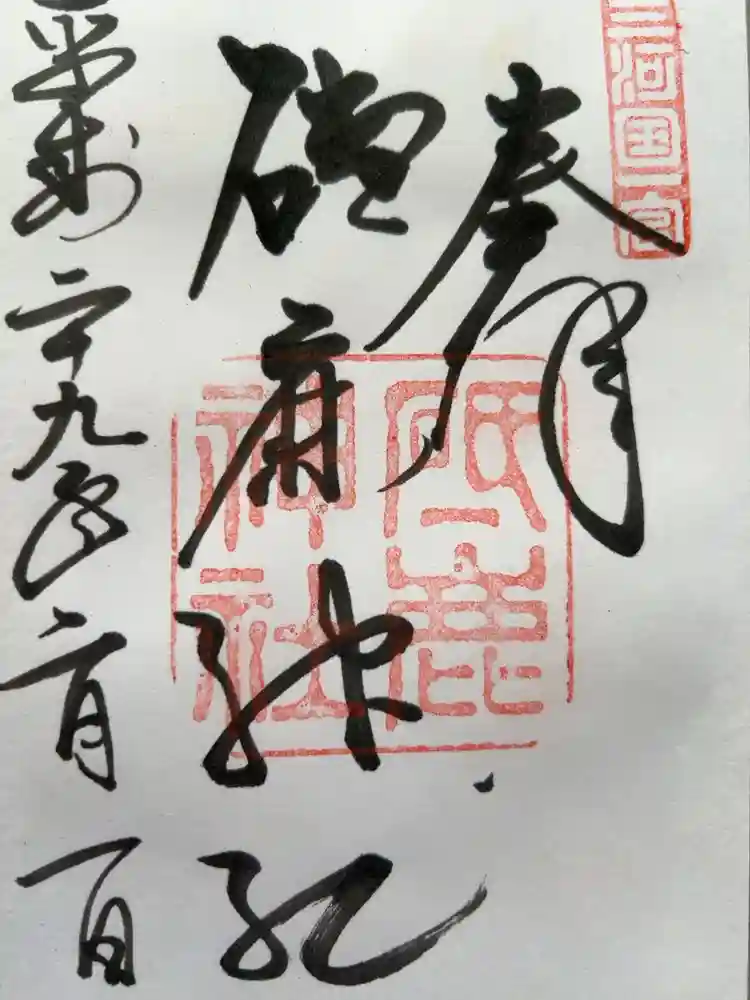 三河国一宮
奉拝
砥鹿神社
砥鹿神社
平成二十九年二月一日